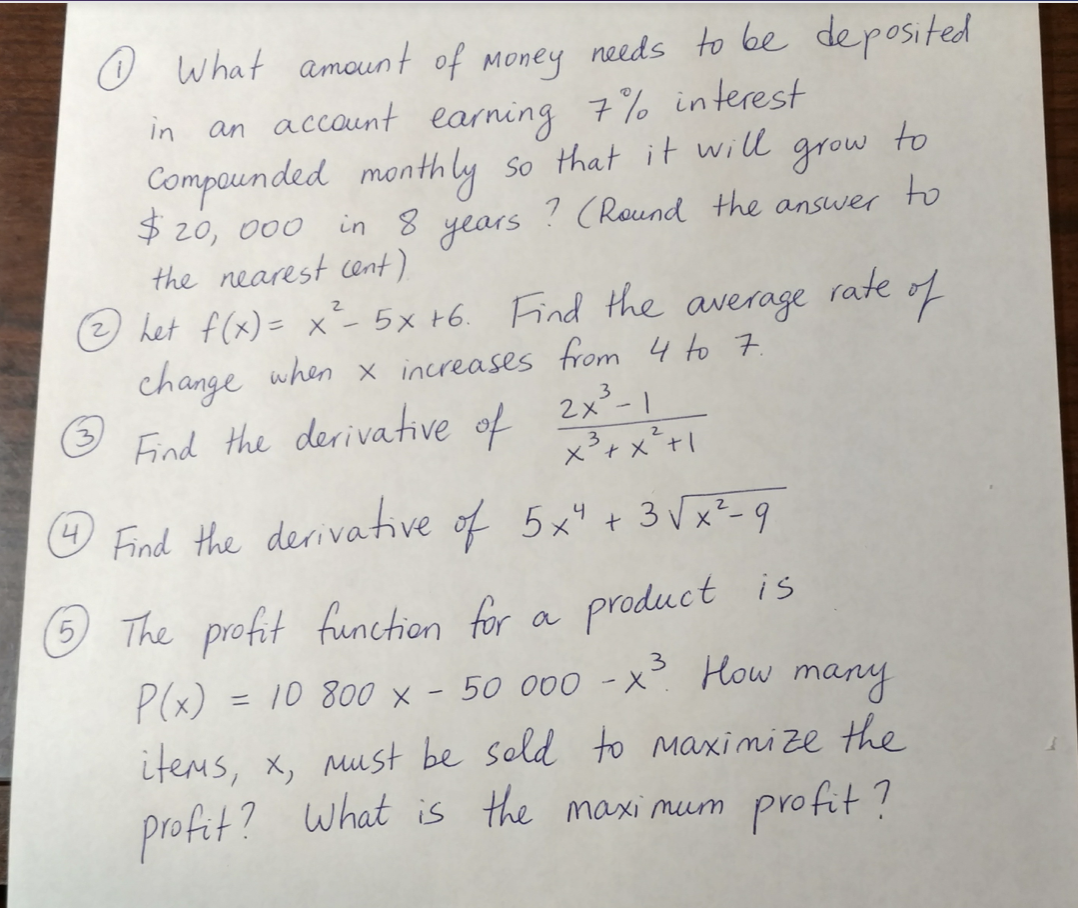 ① What amount of money needs to be deposited
in an account earning 7% interest
compounded monthly so that it will grow to
$20,000 in 8 years? (Round the answer to
the nearest cent)
② Let f(x) = x² - 5x + 6. Find the average rate of
change when x increases from 4 to 7.
③ Find the derivative of (2x³ - 1)/(x³ + x² + 1)
④ Find the derivative of 5x⁴ + 3√(x² - 9)
⑤ The profit function for a product is
P(x) = 10 800 x - 50 000 - x³. How many
items, x, must be sold to maximize the
profit? What is the maximum profit?